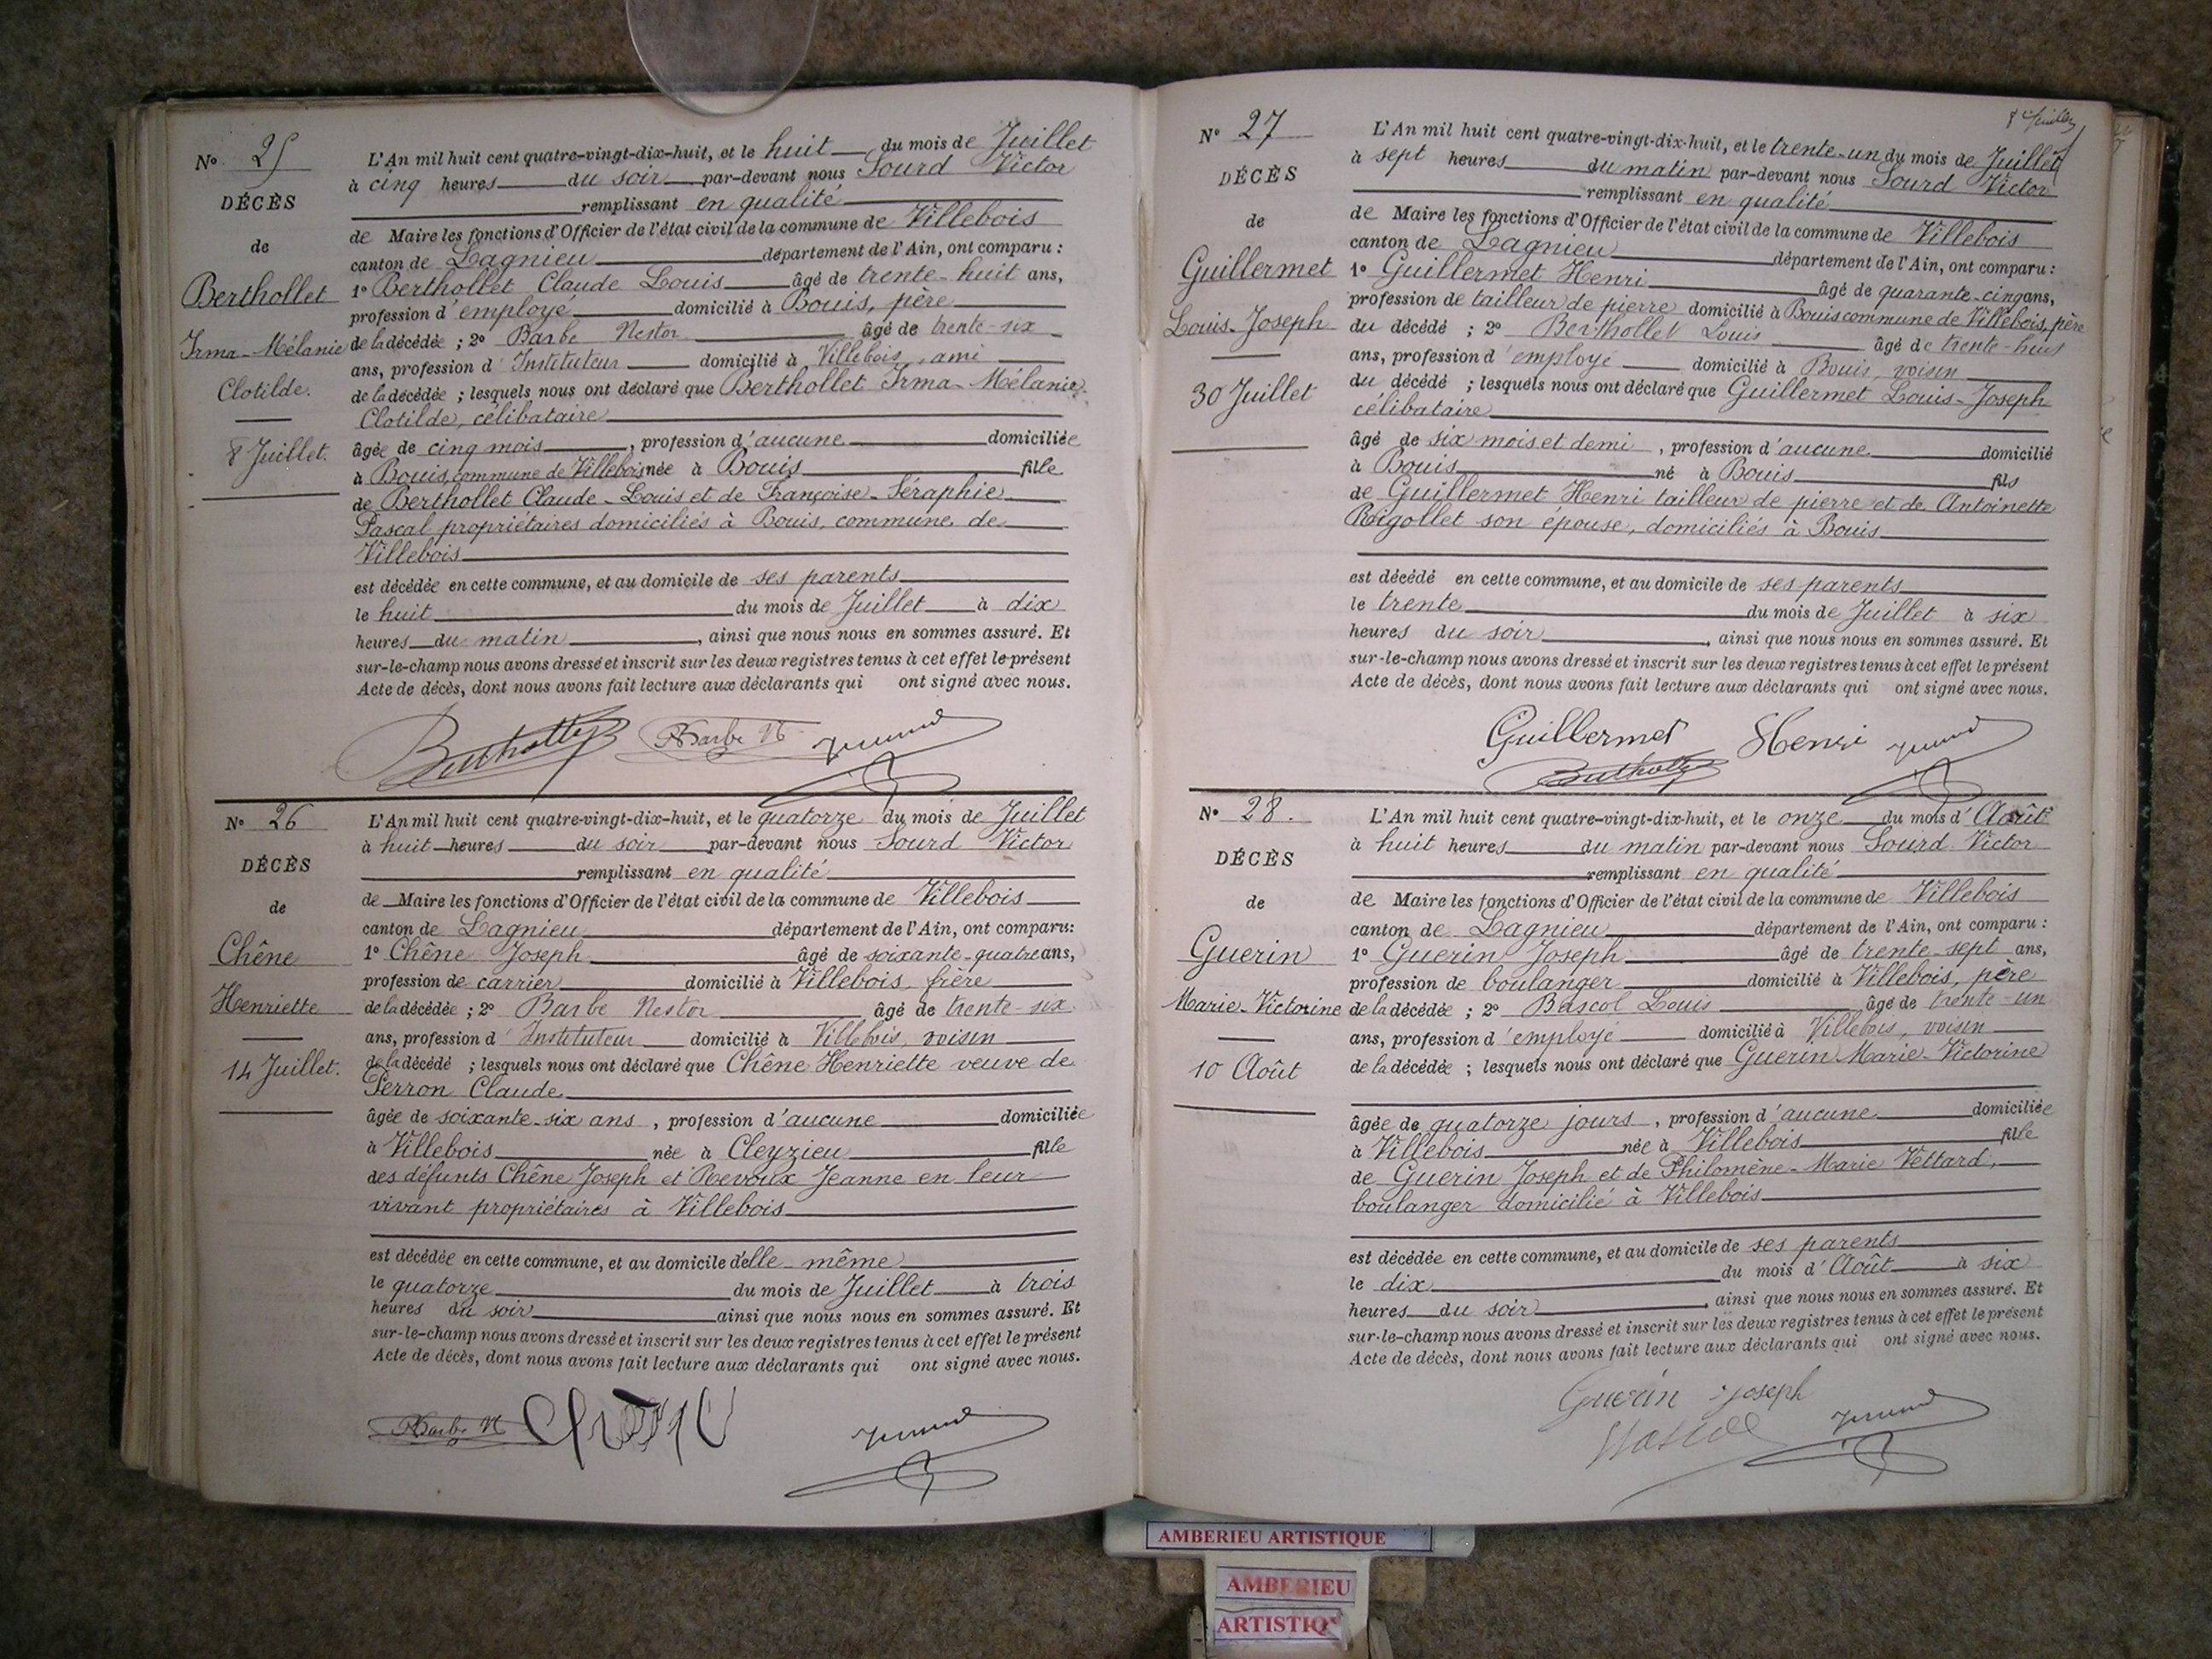 N° 25
DÉCÈS
de
Berthollet
Irma-Mélanie
Clotilde.
8 Juillet.
L'An mil huit cent quatre-vingt-dix-huit, et le huit du mois de Juillet
à cinq heures du soir par-devant nous Sourd Victor
remplissant en qualité
de Maire les fonctions d'Officier de l'état civil de la commune de Villebois
canton de Lagnieu département de l'Ain, ont comparu :
1° Berthollet Claude Louis âgé de trente-huit ans,
profession d'employé domicilié à Bouis, père
de la décédée ; 2° Barbe Nestor âgé de trente-six
ans, profession d'Instituteur domicilié à Villebois, ami
de la décédée ; lesquels nous ont déclaré que Berthollet Irma-Mélanie-
Clotilde, célibataire
âgée de cinq mois, profession d'aucune domiciliée
à Bouis, commune de Villebois née à Bouis fille
de Berthollet Claude-Louis et de Françoise-Séraphie
Pascal propriétaires domiciliés à Bouis, commune de
Villebois
est décédée en cette commune, et au domicile de ses parents
le huit du mois de Juillet à dix
heures du matin, ainsi que nous nous en sommes assuré. Et
sur-le-champ nous avons dressé et inscrit sur les deux registres tenus à cet effet le présent
Acte de décès, dont nous avons fait lecture aux déclarants qui ont signé avec nous.
Berthollet Barbe N
N° 26
DÉCÈS
de
Chêne
Henriette
14 Juillet.
L'An mil huit cent quatre-vingt-dix-huit, et le quatorze du mois de Juillet
à huit heures du soir par-devant nous Sourd Victor
remplissant en qualité
de Maire les fonctions d'Officier de l'état civil de la commune de Villebois
canton de Lagnieu département de l'Ain, ont comparu:
1° Chêne Joseph âgé de soixante-quatre ans,
profession de carrier domicilié à Villebois, frère
de la décédée ; 2° Barbe Nestor âgé de trente-six
ans, profession d'Instituteur domicilié à Villebois, voisin
de la décédé ; lesquels nous ont déclaré que Chêne Henriette veuve de
Perron Claude
âgée de soixante-six ans, profession d'aucune domiciliée
à Villebois née à Cleyzieu fille
des défunts Chêne Joseph et Revoux Jeanne en leur
vivant propriétaires à Villebois
est décédée en cette commune, et au domicile d'elle-même
le quatorze du mois de Juillet à trois
heures du soir ainsi que nous nous en sommes assuré. Et
sur-le-champ nous avons dressé et inscrit sur les deux registres tenus à cet effet le présent
Acte de décès, dont nous avons fait lecture aux déclarants qui ont signé avec nous.
Barbe N Chêne
8 Juillet
N° 27
DÉCÈS
de
Guillermet
Louis-Joseph
30 Juillet
L'An mil huit cent quatre-vingt-dix-huit, et le trente-un du mois de Juillet
à sept heures du matin par-devant nous Sourd Victor
remplissant en qualité
de Maire les fonctions d'Officier de l'état civil de la commune de Villebois
canton de Lagnieu département de l'Ain, ont comparu :
1° Guillermet Henri âgé de quarante-cinq ans,
profession de tailleur de pierre domicilié à Bouis commune de Villebois, père
du décédé ; 2° Berthollet Louis âgé de trente-huit
ans, profession d'employé domicilié à Bouis, voisin
du décédé ; lesquels nous ont déclaré que Guillermet Louis-Joseph
célibataire
âgé de six mois et demi, profession d'aucune domicilié
à Bouis né à Bouis fils
de Guillermet Henri tailleur de pierre et de Antoinette
Rigollet son épouse, domiciliés à Bouis
est décédé en cette commune, et au domicile de ses parents
le trente du mois de Juillet à six
heures du soir, ainsi que nous nous en sommes assuré. Et
sur-le-champ nous avons dressé et inscrit sur les deux registres tenus à cet effet le présent
Acte de décès, dont nous avons fait lecture aux déclarants qui ont signé avec nous.
Guillermet Henri
Berthollet
N° 28.
DÉCÈS
de
Guerin
Marie-Victorine
10 Août
L'An mil huit cent quatre-vingt-dix-huit, et le onze du mois d'Août
à huit heures du matin par-devant nous Sourd Victor
remplissant en qualité
de Maire les fonctions d'Officier de l'état civil de la commune de Villebois
canton de Lagnieu département de l'Ain, ont comparu :
1° Guerin Joseph âgé de trente-sept ans,
profession de boulanger domicilié à Villebois, père
de la décédée ; 2° Bascol Louis âgé de trente-un
ans, profession d'employé domicilié à Villebois, voisin
de la décédée ; lesquels nous ont déclaré que Guerin Marie-Victorine
âgée de quatorze jours, profession d'aucune domiciliée
à Villebois née à Villebois fille
de Guerin Joseph et de Philomène-Marie Vettard,
boulanger domicilié à Villebois
est décédée en cette commune, et au domicile de ses parents
le dix du mois d'Août à six
heures du soir, ainsi que nous nous en sommes assuré. Et
sur-le-champ nous avons dressé et inscrit sur les deux registres tenus à cet effet le présent
Acte de décès, dont nous avons fait lecture aux déclarants qui ont signé avec nous.
Guerin Joseph
AMBERIEU ARTISTIQUE
AMBERIEU
ARTISTIQ